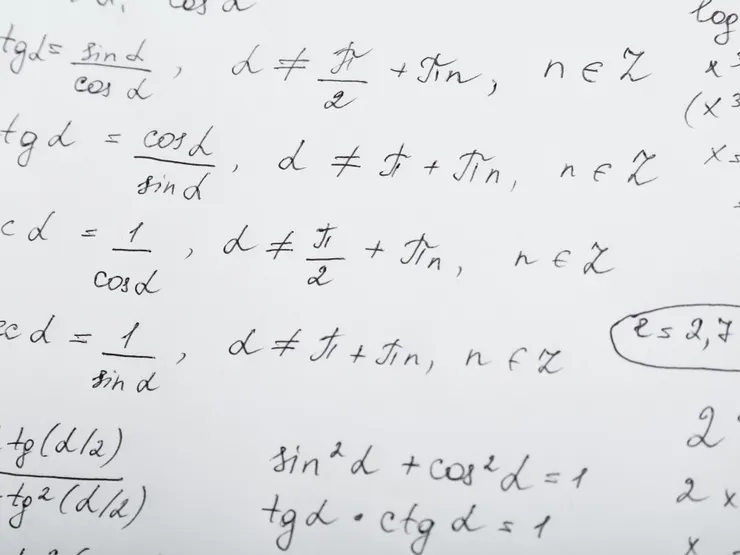 cos α
tg α = sin α / cos α , α ≠ π/2 + πn, n ∈ Z
tg α = cos α / sin α , α ≠ π + πn, n ∈ Z
c α = 1 / cos α , α ≠ π/2 + πn, n ∈ Z
c α = 1 / sin α , α ≠ π + πn, n ∈ Z
tg(α/2)
tg²(α/2)
sin²α + cos²α = 1
tg α · ctg α = 1
log
x³
(x³
x =
e = 2,7
2
2 x
x